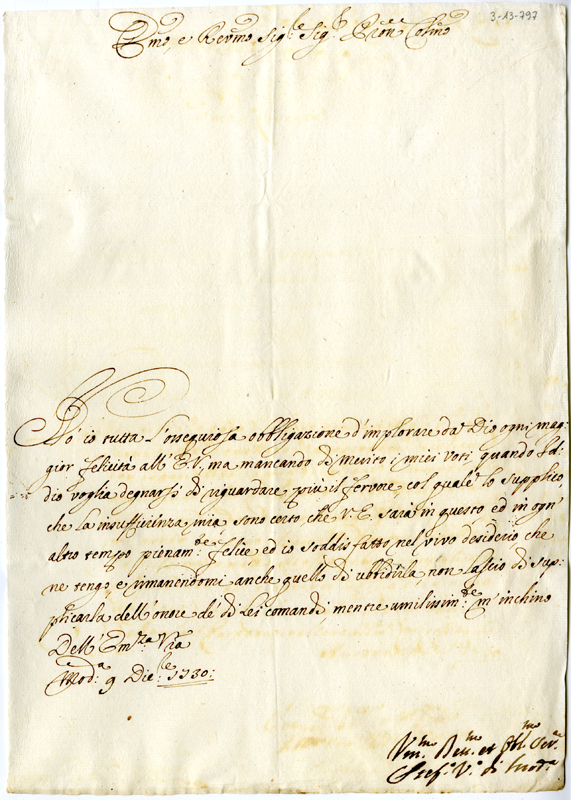 3-13-797
Emo, e Revmo Sigre Sigr Pron Colmo
Hò io tutta l'ossequiosa obbligazione d'implorare da Dio ogni mag:
gior felicità all' E.V., ma mancando di merito i miei voti, quando Id:
dio voglia degnarsi di riguardare più il fervore, col quale lo supplico,
che la insufficienza mia, sono certo, che V.E. sarà in questo ed in ogn'
altro tempo pienam:te felice, ed io soddisfatto nel vivo desiderio che
ne tengo, e rimanendomi anche quello di ubbidirla non lascio di sup:
plicarla dell'onore de' di Lei comandi, mentre umilissim:te m'inchino
Dell' Emza Vra
Mod:a 9 Dic:le 1730:
Um:mo Dev:mo et Obl:mo Ser:e
Stef:o V:o di Mod:a